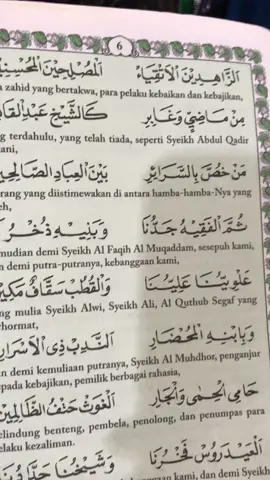 6
الزَّاهِدِينَ الْأَتْقِيَاءْ الْمُصْلِحِينَ
a zahid yang bertakwa, para pelaku kebaikan dan kebajikan,
مِنْ مَاضِيٍ وَغَابِرِ كَالشَّيْخِ
g terdahulu, yang telah tiada, seperti Syeikh Abdul Qadir
ani,
مَنْ خُصَّ بِالسَّرَائِرِ بَيْنَ الْعِبَادِ
rang yang diistimewakan di antara hamba-hamba-Nya yang
eh,
ثُمَّ الْفَقِيهُ جَدُّنَا وَبَنِيهِ ذُخْرُ
mudian demi Syeikh Al Faqih Al Muqaddam, sesepuh kami,
n demi putra-putranya, kebanggaan kami,
عَلْوِيُّنَا عَلِيُّنَا وَالْقُطْبُ سَقَّافٌ
ng mulia Syeikh Alwi, Syeikh Ali, Al Quthub Segaf yang
rhormat,
وَبِابْنِهِ الْمُحْضَارِ النَّدِبِ ذِي الْأَسْرَارِ
an demi kemuliaan putranya, Syeikh Al Muhdhor, penganjur
pada kebajikan, pemilik berbagai rahasia,
حَامِي الْحِمَى وَالْجَارِ الْغَوْثُ حَتْفُ الظَّالِمِينَ
elindung benteng, pembela, penolong, dan penumpas para
elaku kezaliman.
الْعَيْدَرُوسِ فَخْرُنَا وَشَيْخُنَا
kami, dan demi Syeikh